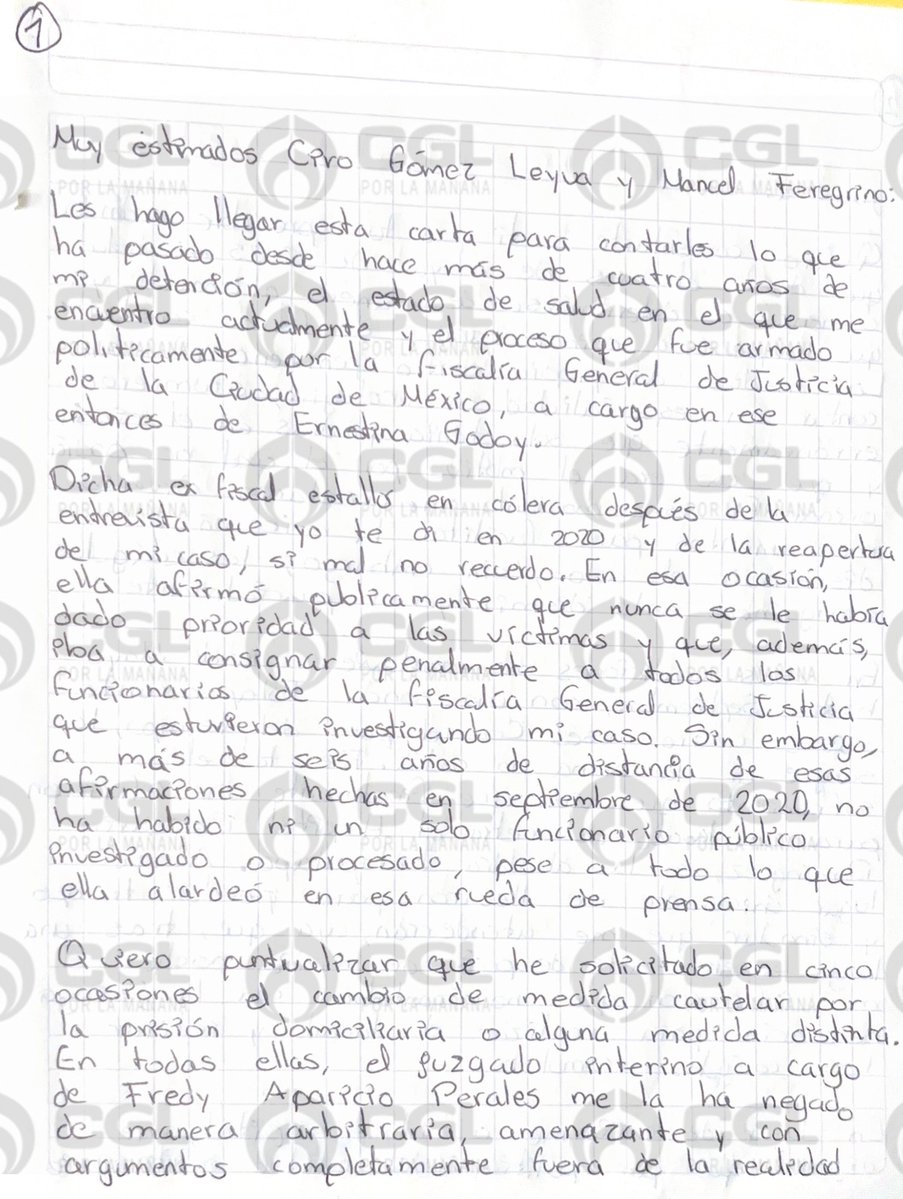 1
Muy estimados Ciro Gómez Leyva y Manuel Feregrino:
Les hago llegar esta carta para contarles lo que
ha pasado desde hace más de cuatro años de
mi detención, el estado de salud en el que me
encuentro actualmente y el proceso que fue armado
políticamente por la fiscalía General de Justicia
de la Ciudad de México, a cargo en ese
entonces de Ernestina Godoy.
Dicha ex fiscal estalló en cólera después de la
entrevista que yo te di en 2020 y de la reapertura
de mi caso, si mal no recuerdo. En esa ocasión,
ella afirmó publicamente que nunca se le había
dado prioridad a las víctimas y que, además,
iba a consignar penalmente a todos los
funcionarios de la fiscalía General de Justicia
que estuvieron investigando mi caso. Sin embargo,
a más de seis años de distancia de esas
afirmaciones hechas en septiembre de 2020, no
ha habido ni un solo funcionario público
investigado o procesado, pese a todo lo que
ella alardeó en esa rueda de prensa.
Quiero puntualizar que he solicitado en cinco
ocasiones el cambio de medida cautelar por
la prisión domiciliaria o alguna medida distinta.
En todas ellas, el juzgado interino a cargo
de Fredy Aparicio Perales me la ha negado
de manera arbitraria, amenazante y con
argumentos completamente fuera de la realidad
CGL
POR LA MAÑANA